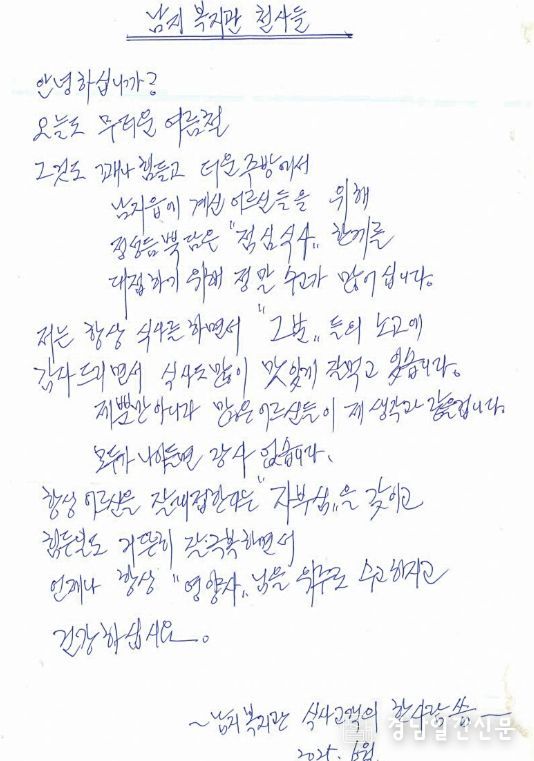 남지 복지관 천사들
안녕하십니까?
오늘도 무더운 여름철
그것도 꽤나 힘들고 더운 주방에서
남지읍에 계신 어르신들을 위해
정성듬뿍 담은 "점심식사" 한끼를
대접하기 위해 정말 수고가 많이 십니다.
저는 항상 식사를 하면서 "그분"들의 노고에
감사드리면서 식사도 많이 맛있게 잘먹고 있습니다.
제뿐만 아니라 많은 어르신들이 제 생각과 같을겁니다.
모두가 나이들면 장사 없습니다.
항상 어르신을 잘대접한다는 "자부심"을 갖이고
힘든일도 거뜬히 잘극복하면서
언제나 항상 "영양사"님을 위주로 수고하시고
건강하십시요.
~남지복지관 식사고객의 한사람 씀~
2025. 6월
경남일간신문